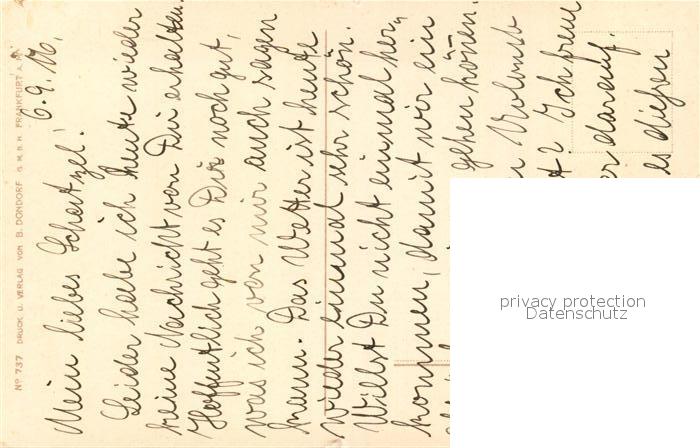 6.9.16.
Mein liebes Schatzel!
Leider habe ich heute wieder
keine Nachricht von Dir erhalten.
Hoffentlich geht es Dir noch gut,
was ich von mir auch sagen
kann. Das Wetter ist heute
wieder einmal sehr schön.
Willst Du nicht einmal her-
kommen, damit wir ein
gehen könen.
Ich freu
darauf.
es diesen
No 737 DRUCK U. VERLAG VOM B. DONDORF G.M.B.H. FRANKFURT A.M.
privacy protection
Datenschutz